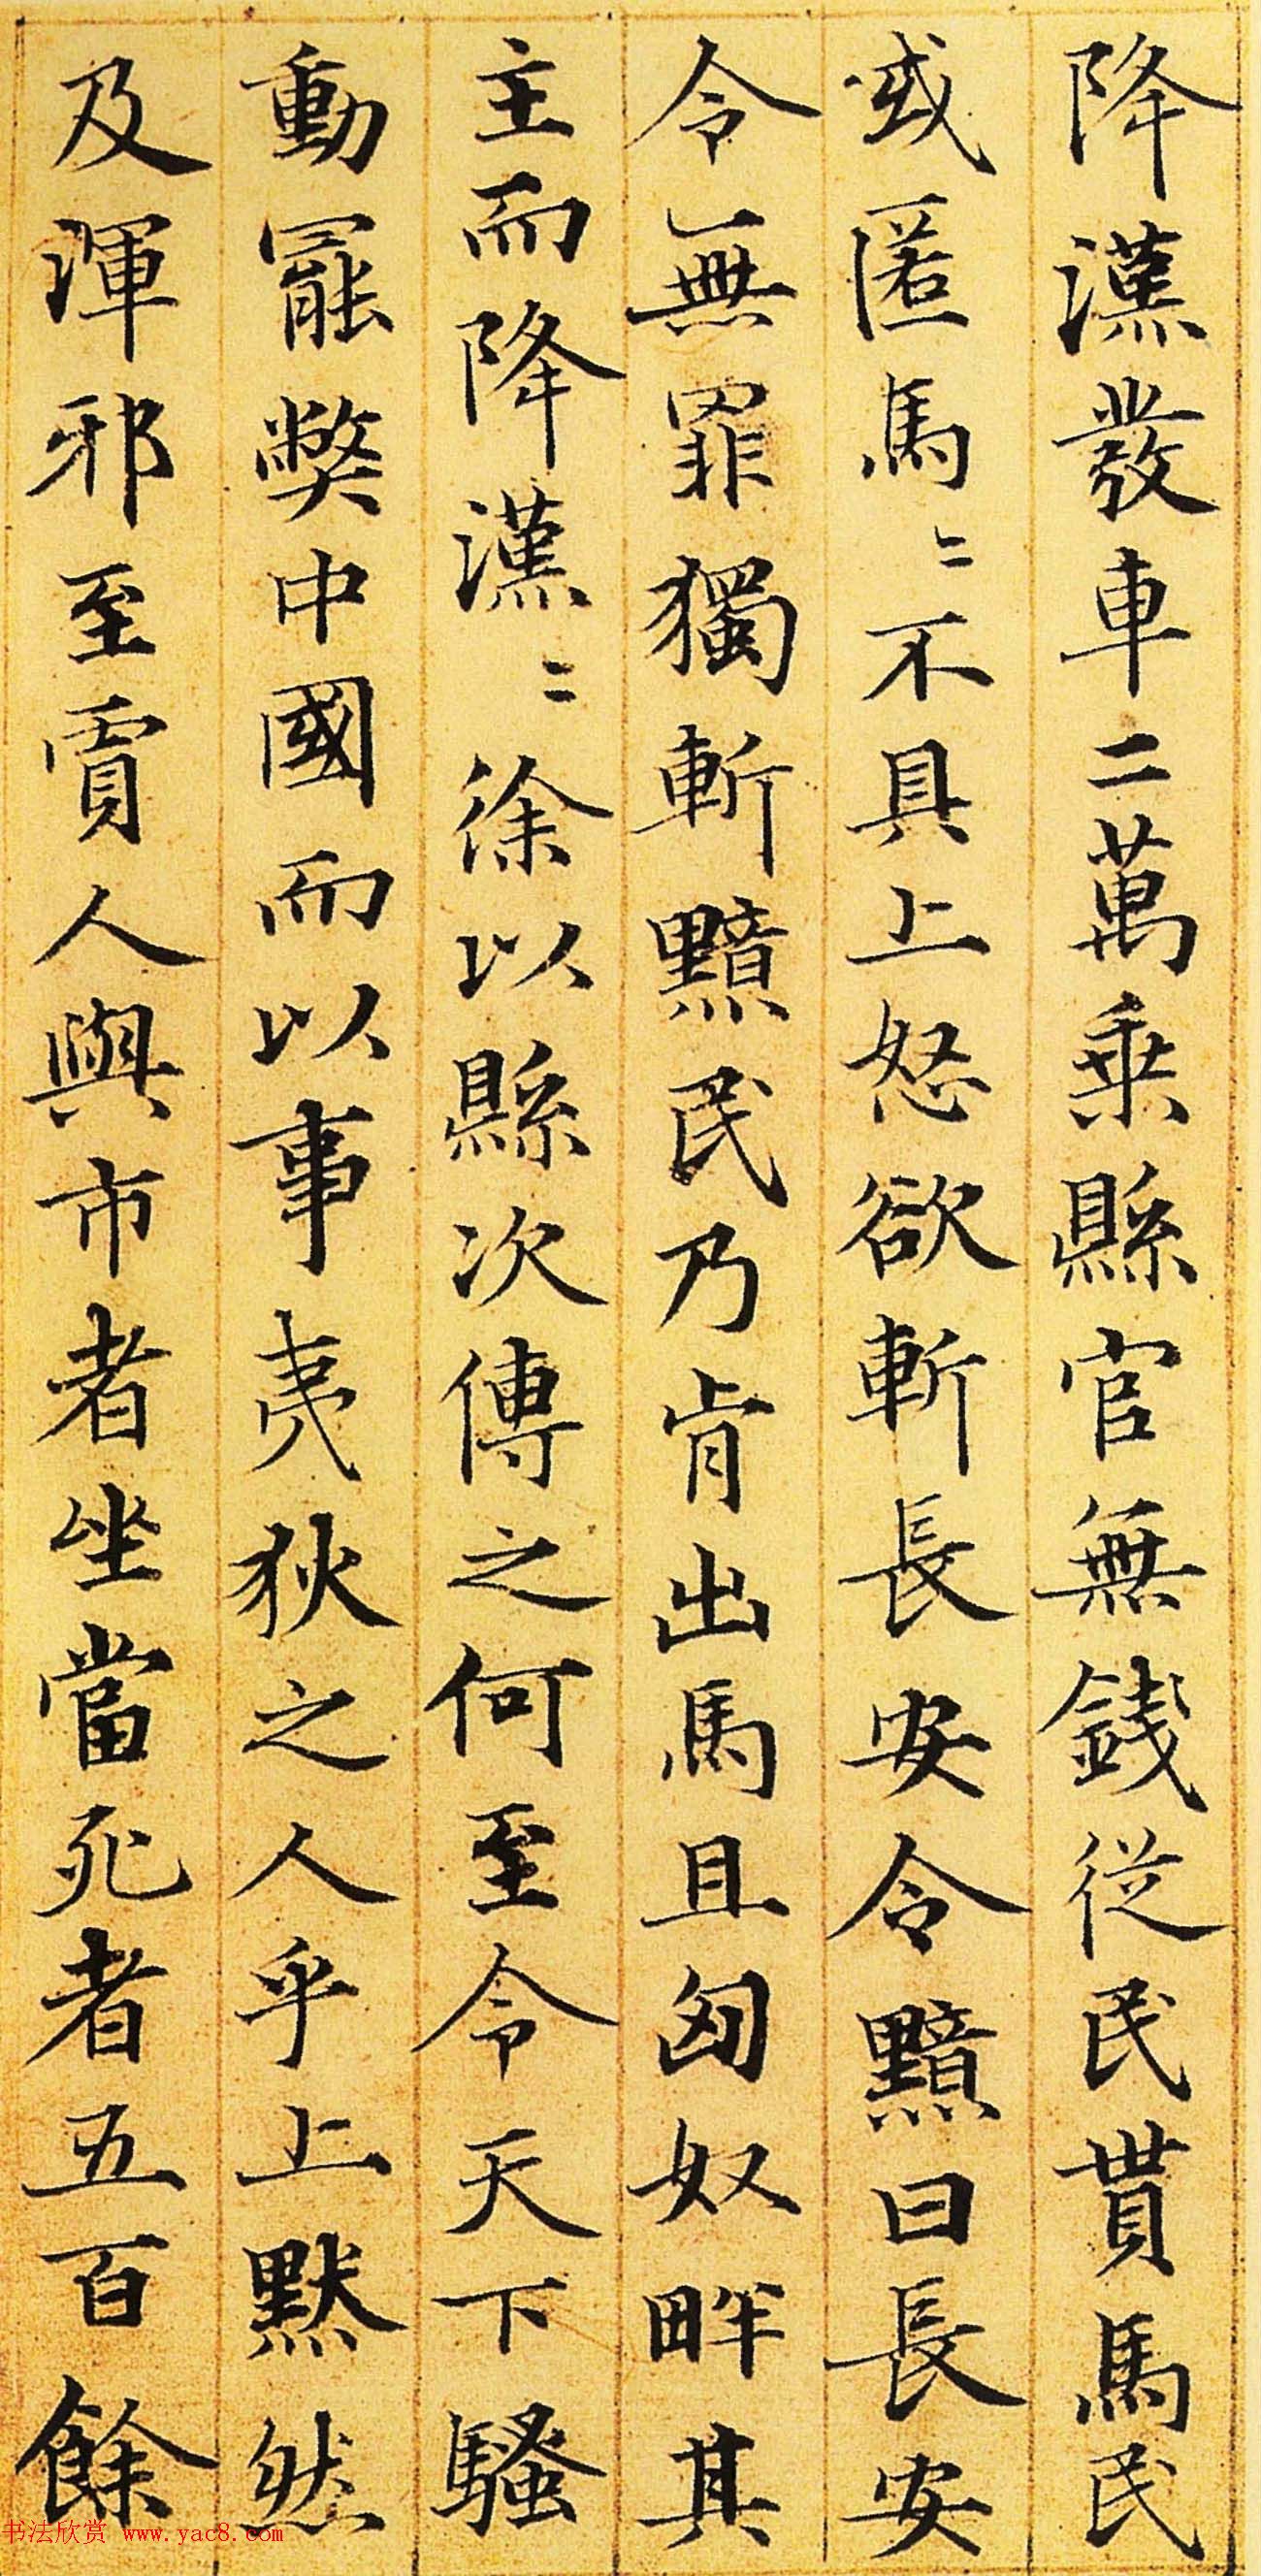 降漢發車二萬乘縣官無錢從民貰馬民
或匿馬〻不具上怒欲斬長安令黯曰長安
令無罪獨斬黯民乃肯出馬且匈奴畔其
主而降漢〻徐以縣次傳之何至令天下騷
動罷弊中國而以事夷狄之人乎上默然
及渾邪至賈人與市者坐當死者五百餘
书法欣赏 www.yac8.com